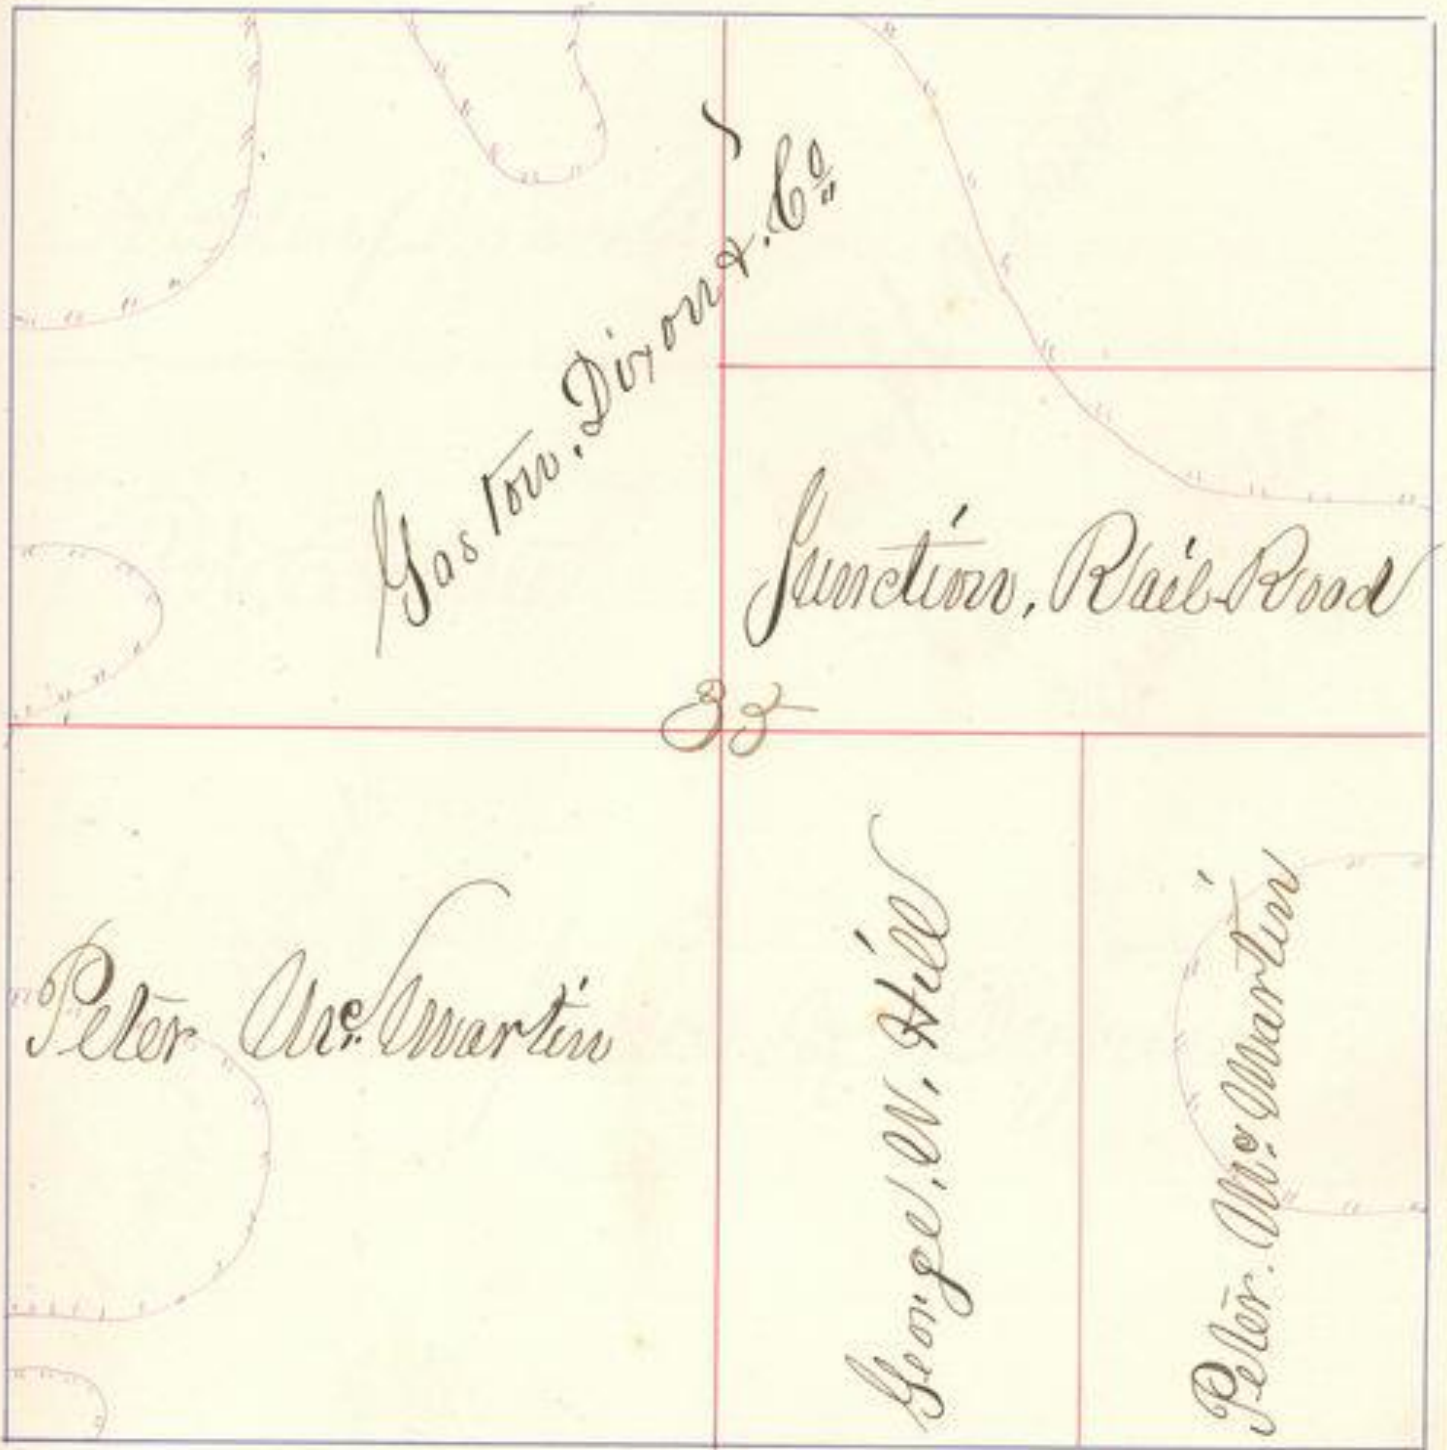 Gaston, Dixon & Co
Junction, Rail-Road
35
Peter Mc. Martin
George, W, Hill
Peter. Mc. Martin